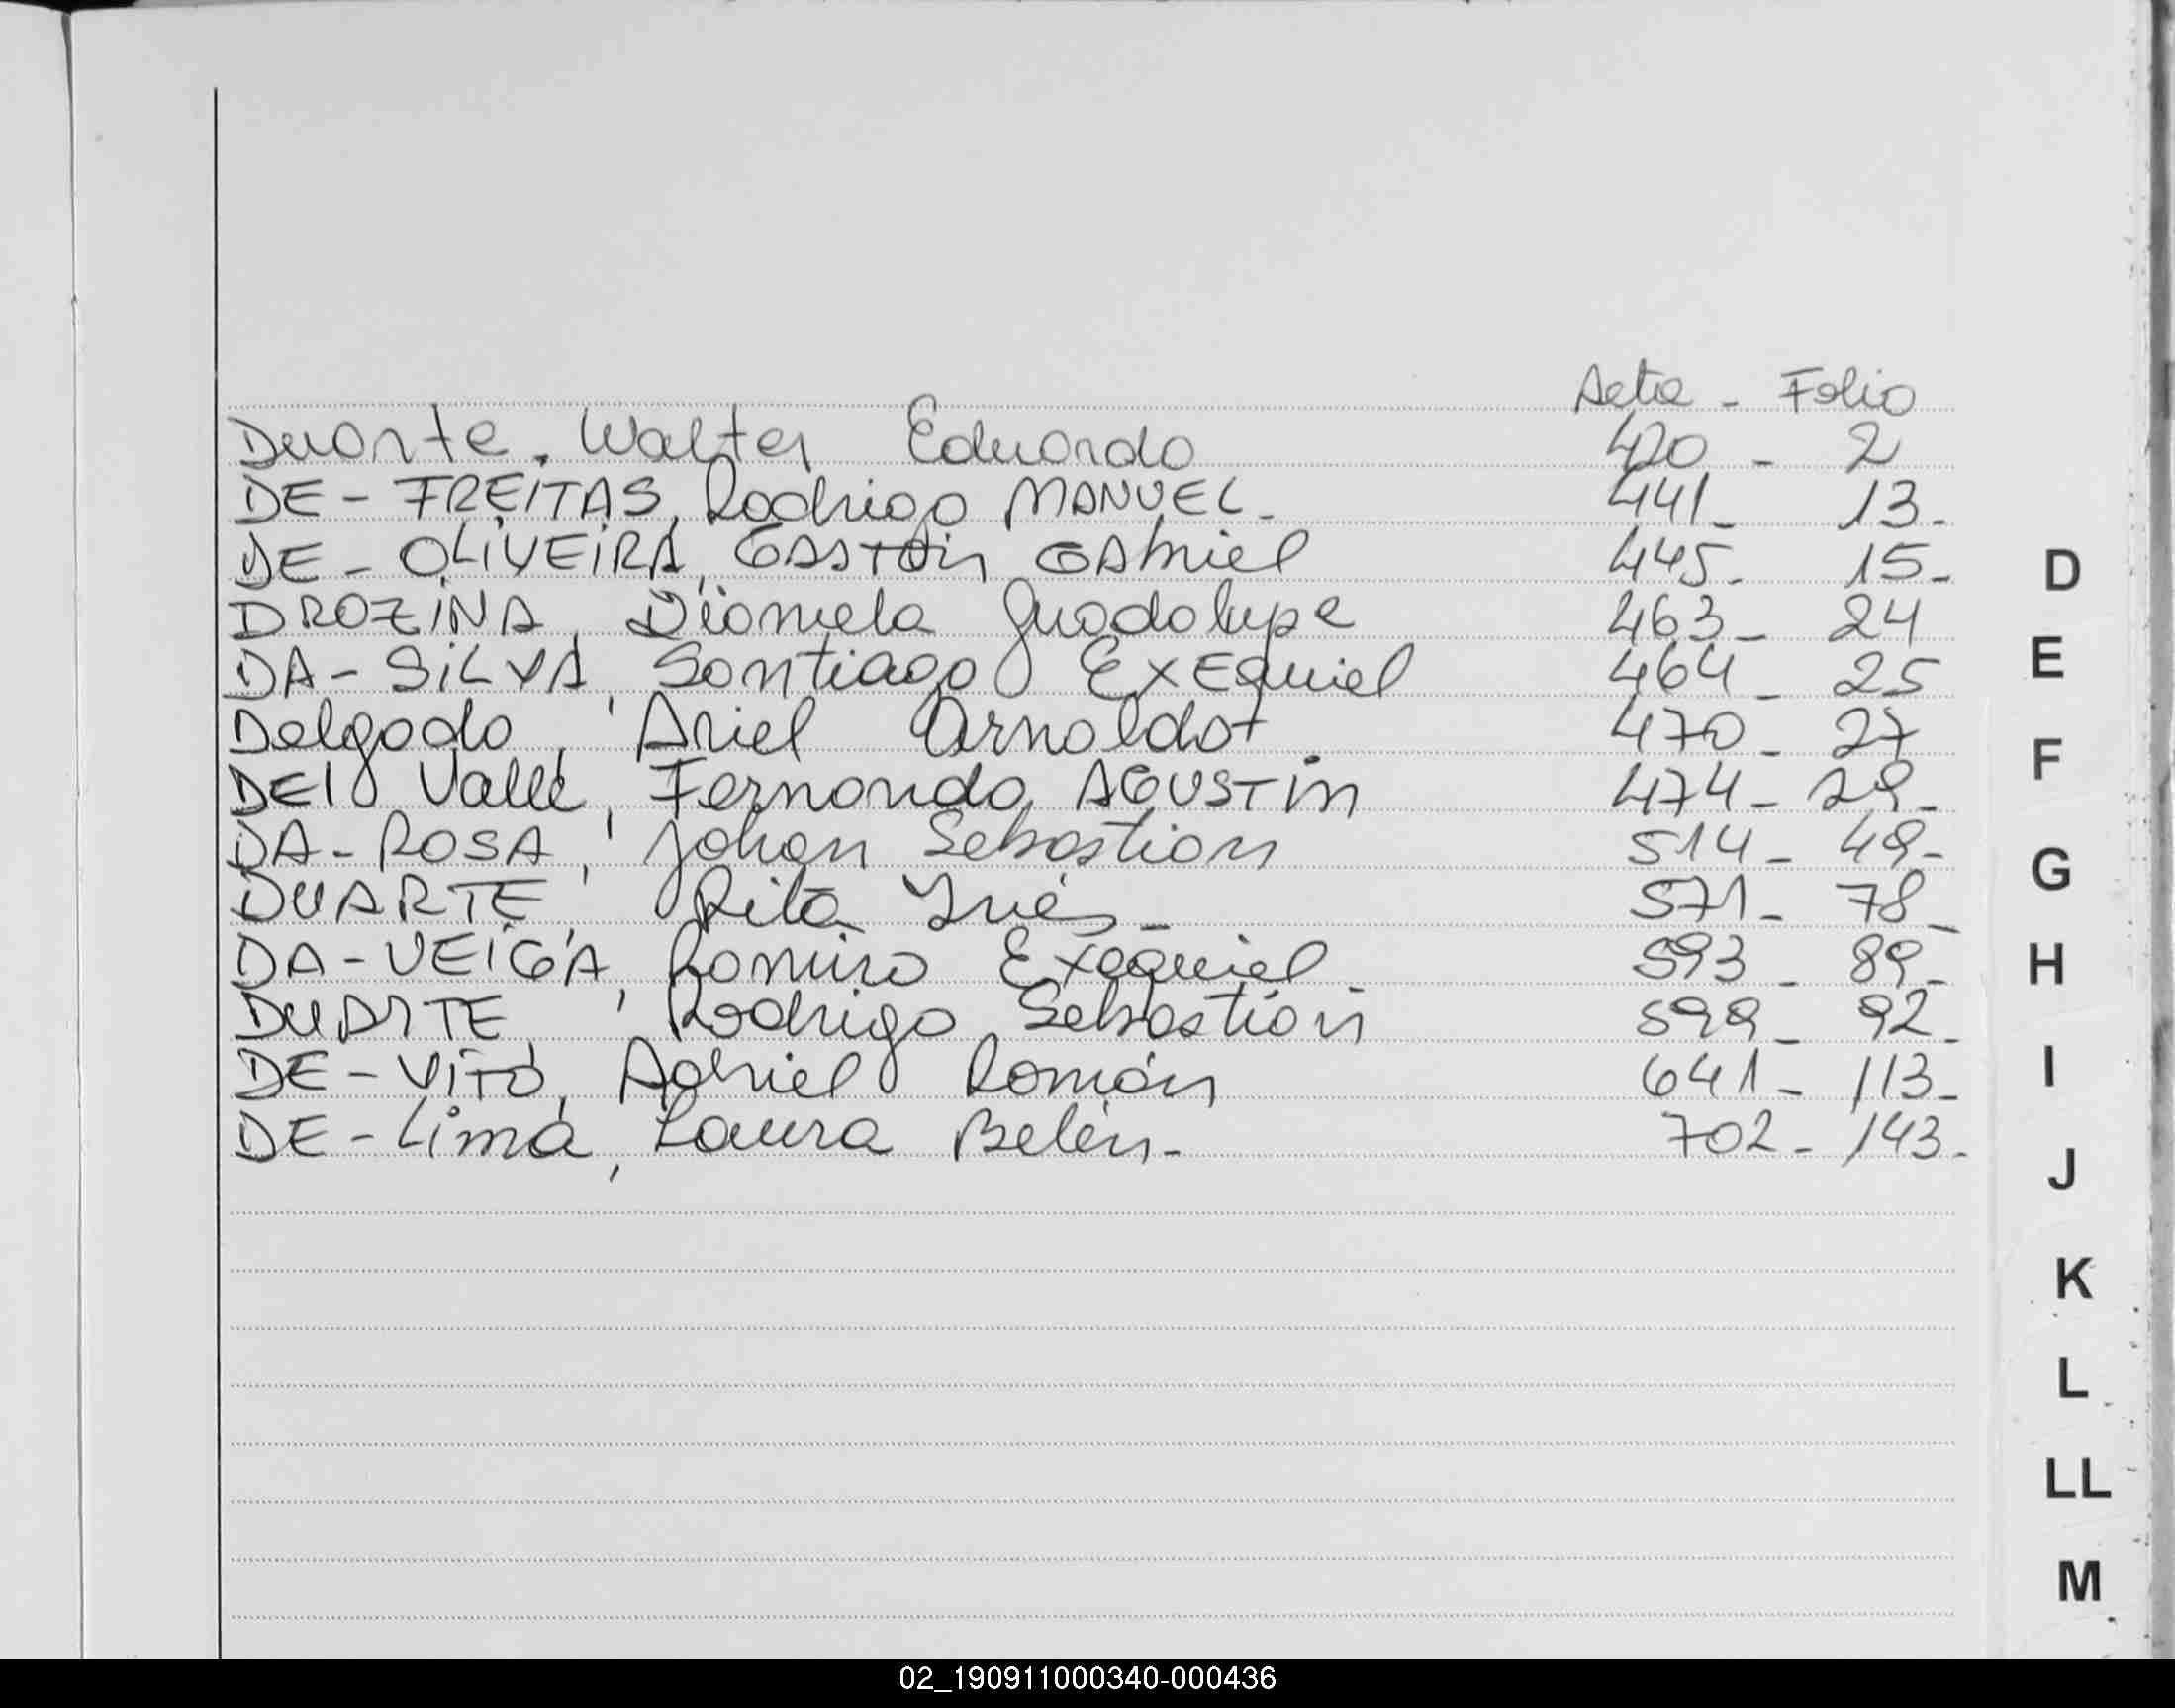 Acta - Folio
Duarte, Walter Eduardo 420 - 2
DE - FREITAS, Rodrigo MANUEL - 441 - 13 -
DE - OLIVEIRA, GASTÓN GABriel 445 - 15 -
DROZINA, Diomela Guadalupe 463 - 24
DA - SILVA, Santiago EXEquiel 464 - 25
Delgado, Ariel Arnoldo 470 - 27
DEl Valle, Fernando AGUSTín 474 - 29 -
DA - ROSA, Johan Sebastian 514 - 49 -
DUARTE, Rita Inés - 571 - 78 -
DA - VEIGA, Ramiro Exequiel - 593 - 89 -
DUARTE, Rodrigo Sebastián 599 - 92 -
DE - VITO, Adriel Román 641 - 113 -
DE - Lima, Laura Belén - 702 - 143 -
D
E
F
G
H
I
J
K
L
LL
M
02_190911000340-000436